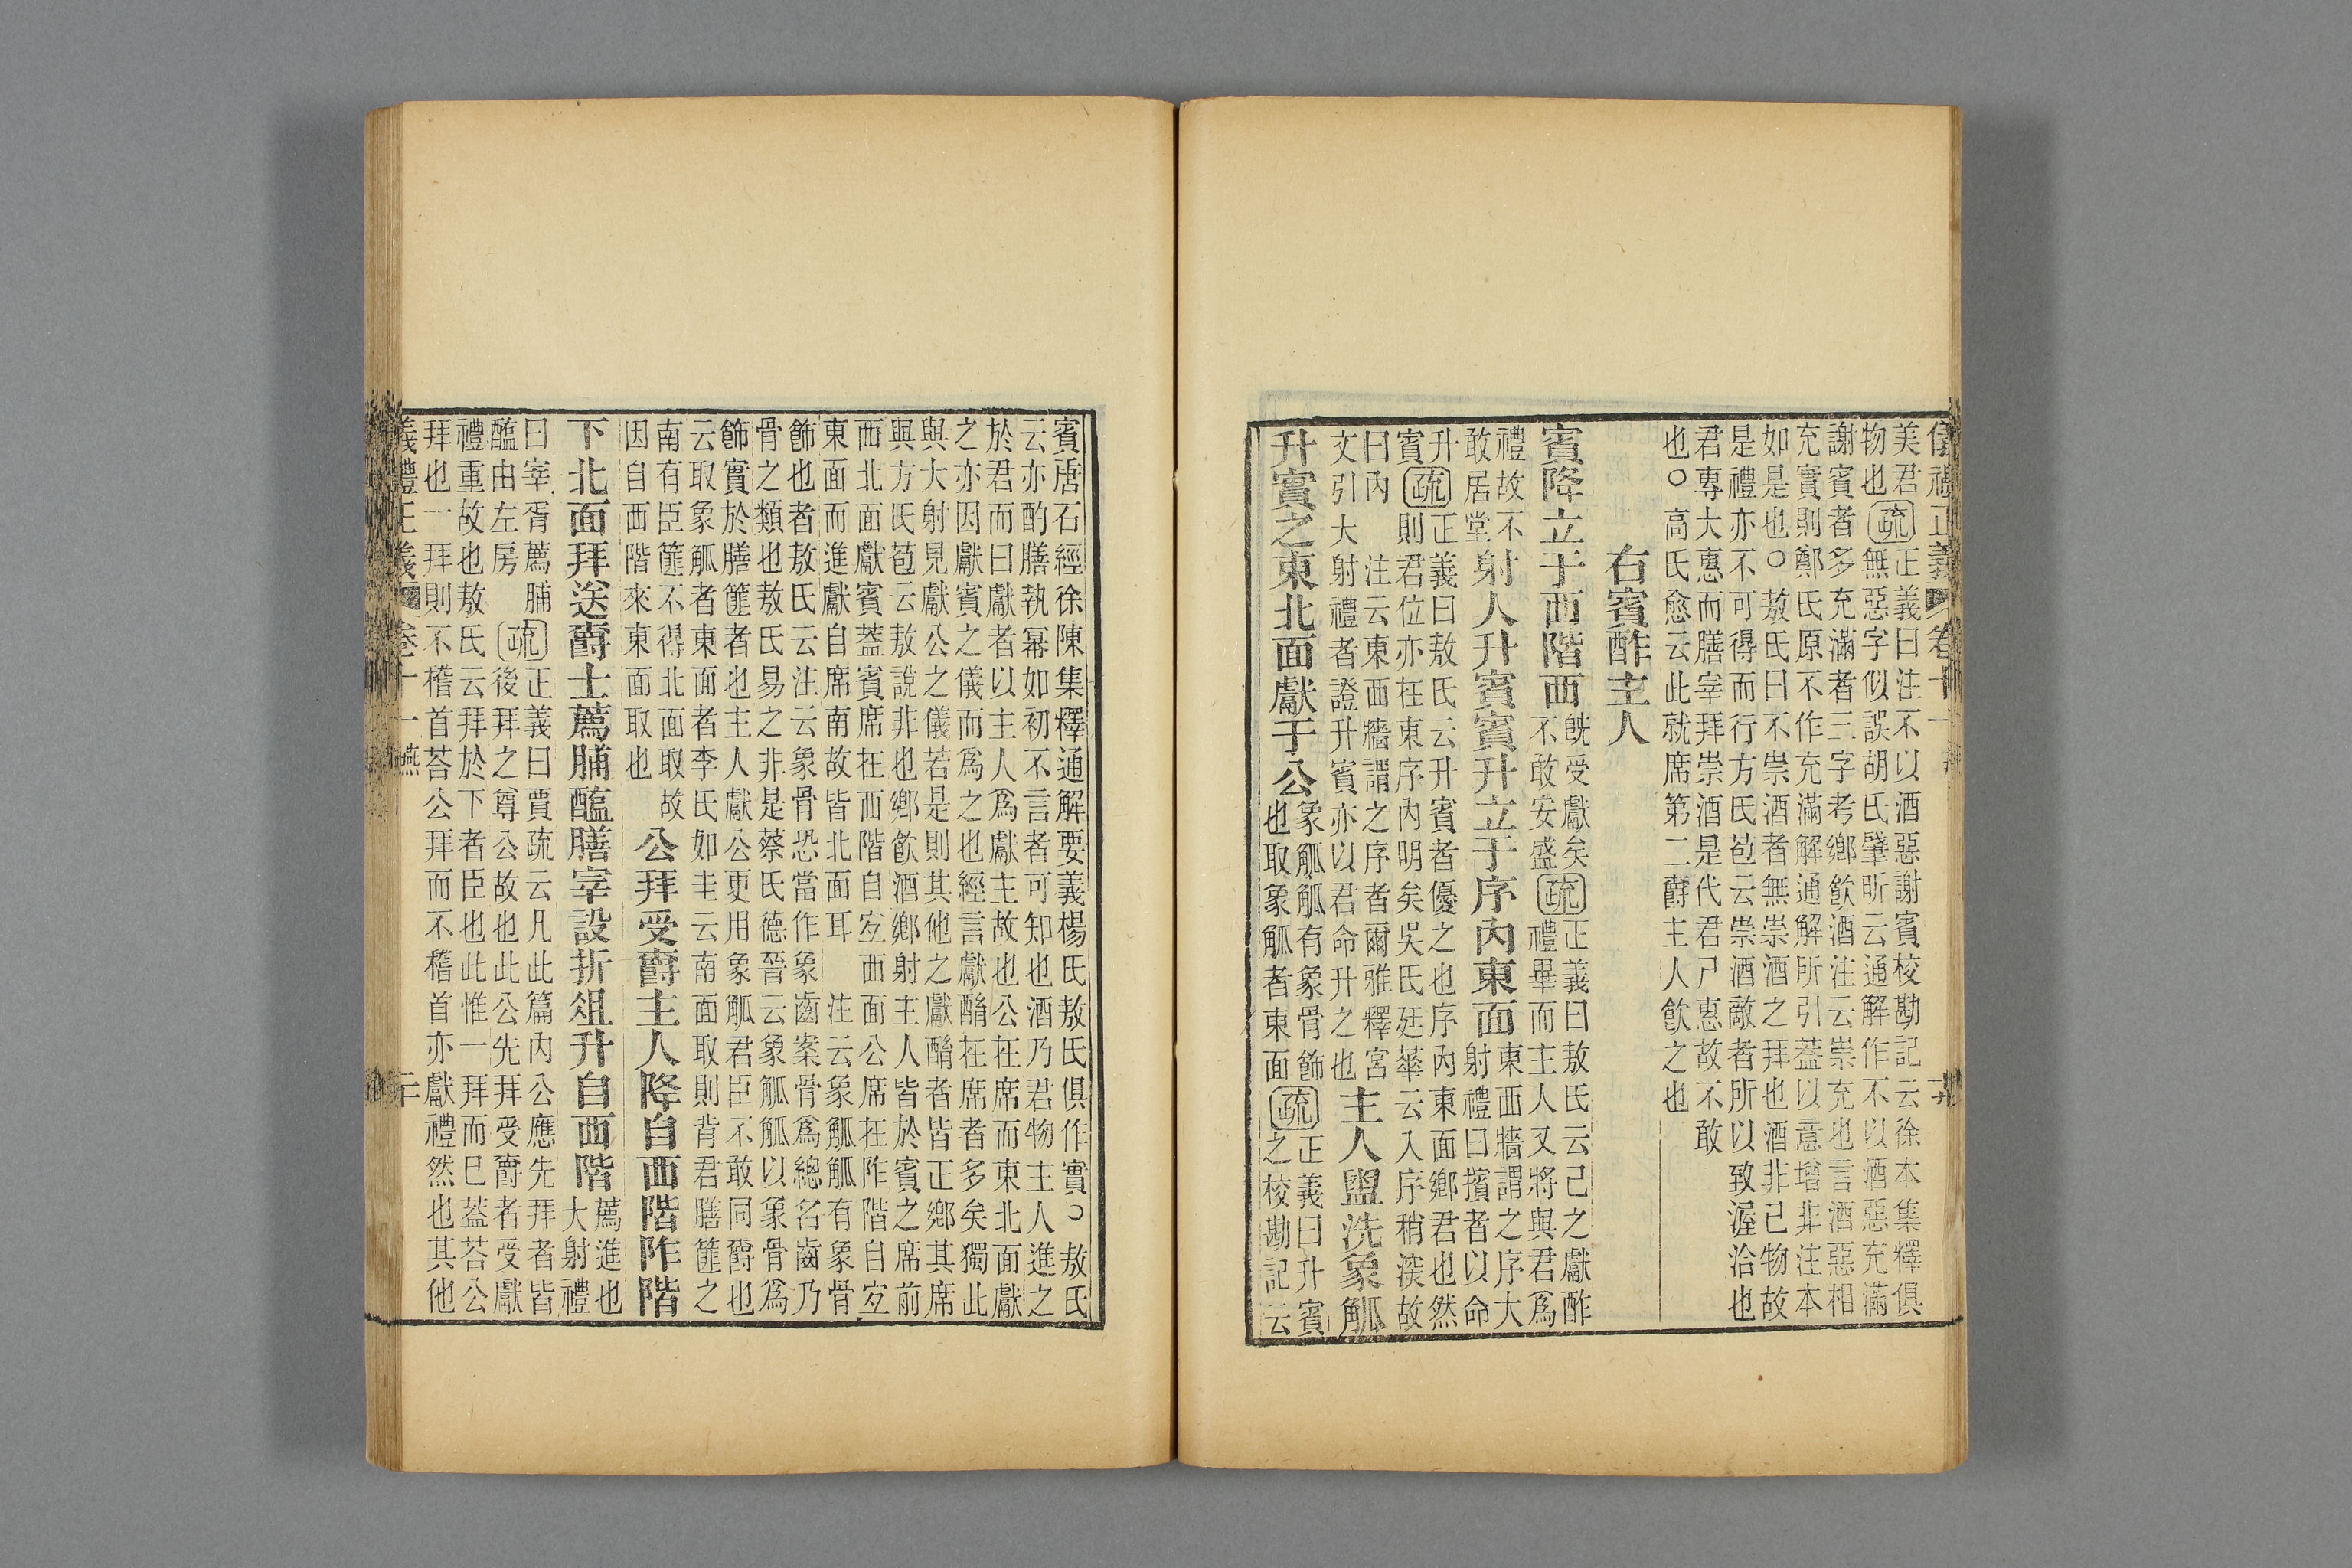 美君物也疏正義曰注不以酒惡謝賓校勘記云徐本集釋俱
無惡字似誤胡氏肇昕云通解作不以酒惡充滿
謝賓者多充滿者三字考鄉飲酒注云崇充也言酒惡相
充實則鄭氏原不作充滿解通解所引蓋以意增非注本
如是也○敖氏曰不崇酒者無崇酒之拜也酒非己物故
是禮亦不可得而行方氏苞云崇酒敵者所以致渥洽也
君專大惠而膳宰拜崇酒是代君尸惠故不敢
也○高氏愈云此就席第二爵主人飲之也
右賓酢主人
賓降立于西階西
旣受獻矣不敢安盛疏正義曰敖氏云己之獻酢
禮畢而主人又將與君為
禮故不敢居堂射人升賓賓升立于序內東面
東西牆謂之序大
射禮曰擯者以命
升賓疏正義曰敖氏云升賓者優之也序內東面鄉君也然
則君位亦在東序內明矣吳氏廷華云入序稍深故
曰內 注云東西牆謂之序者爾雅釋宮
文引大射禮者證升賓亦以君命升之也
主人盥洗象觚
升實之東北面獻于公
象觚觚有象骨飾
也取象觚者東面疏正義曰升賓
之校勘記云
賓唐石經徐陳集釋通解要義楊氏敖氏俱作實○敖氏
云亦酌膳執冪如初不言者可知也酒乃君物主人進之
於君而曰獻者以主人爲獻主故也公在席而東北面獻
之亦因獻賓之儀而爲之也經言獻酳在席者多矣獨此
與大射見獻公之儀若是則其他之獻酳者皆正鄉其席
與方氏苞云敖說非也鄉飲酒鄉射主人皆於賓之席前
西北面獻賓蓋賓席在西階自宐西面公席在阼階自宐
東面而進獻自席南故皆北面耳 注云象觚觚有象骨
飾也者敖氏云注云象骨恐當作象齒案骨爲總名齒乃
骨之類也敖氏易之非是蔡氏德晉云象觚觚以象骨爲
飾實於膳篚者也主人獻公更用象觚君臣不敢同爵也
云取象觚者東面者李氏如圭云南面取則背君膳篚之
南有臣篚不得北面取故
因自西階來東面取也
公拜受爵主人降自西階阼階
下北面拜送爵士薦脯醢膳宰設折俎升自西階
薦進也
大射禮
曰宰胥薦脯
醢由左房疏正義曰賈疏云凡此篇內公應先拜者皆
後拜之尊公故也此公先拜受爵者受獻
禮重故也敖氏云拜於下者臣也此惟一拜而已蓋荅公
拜也一拜則不稽首荅公拜而不稽首亦獻禮然也其他